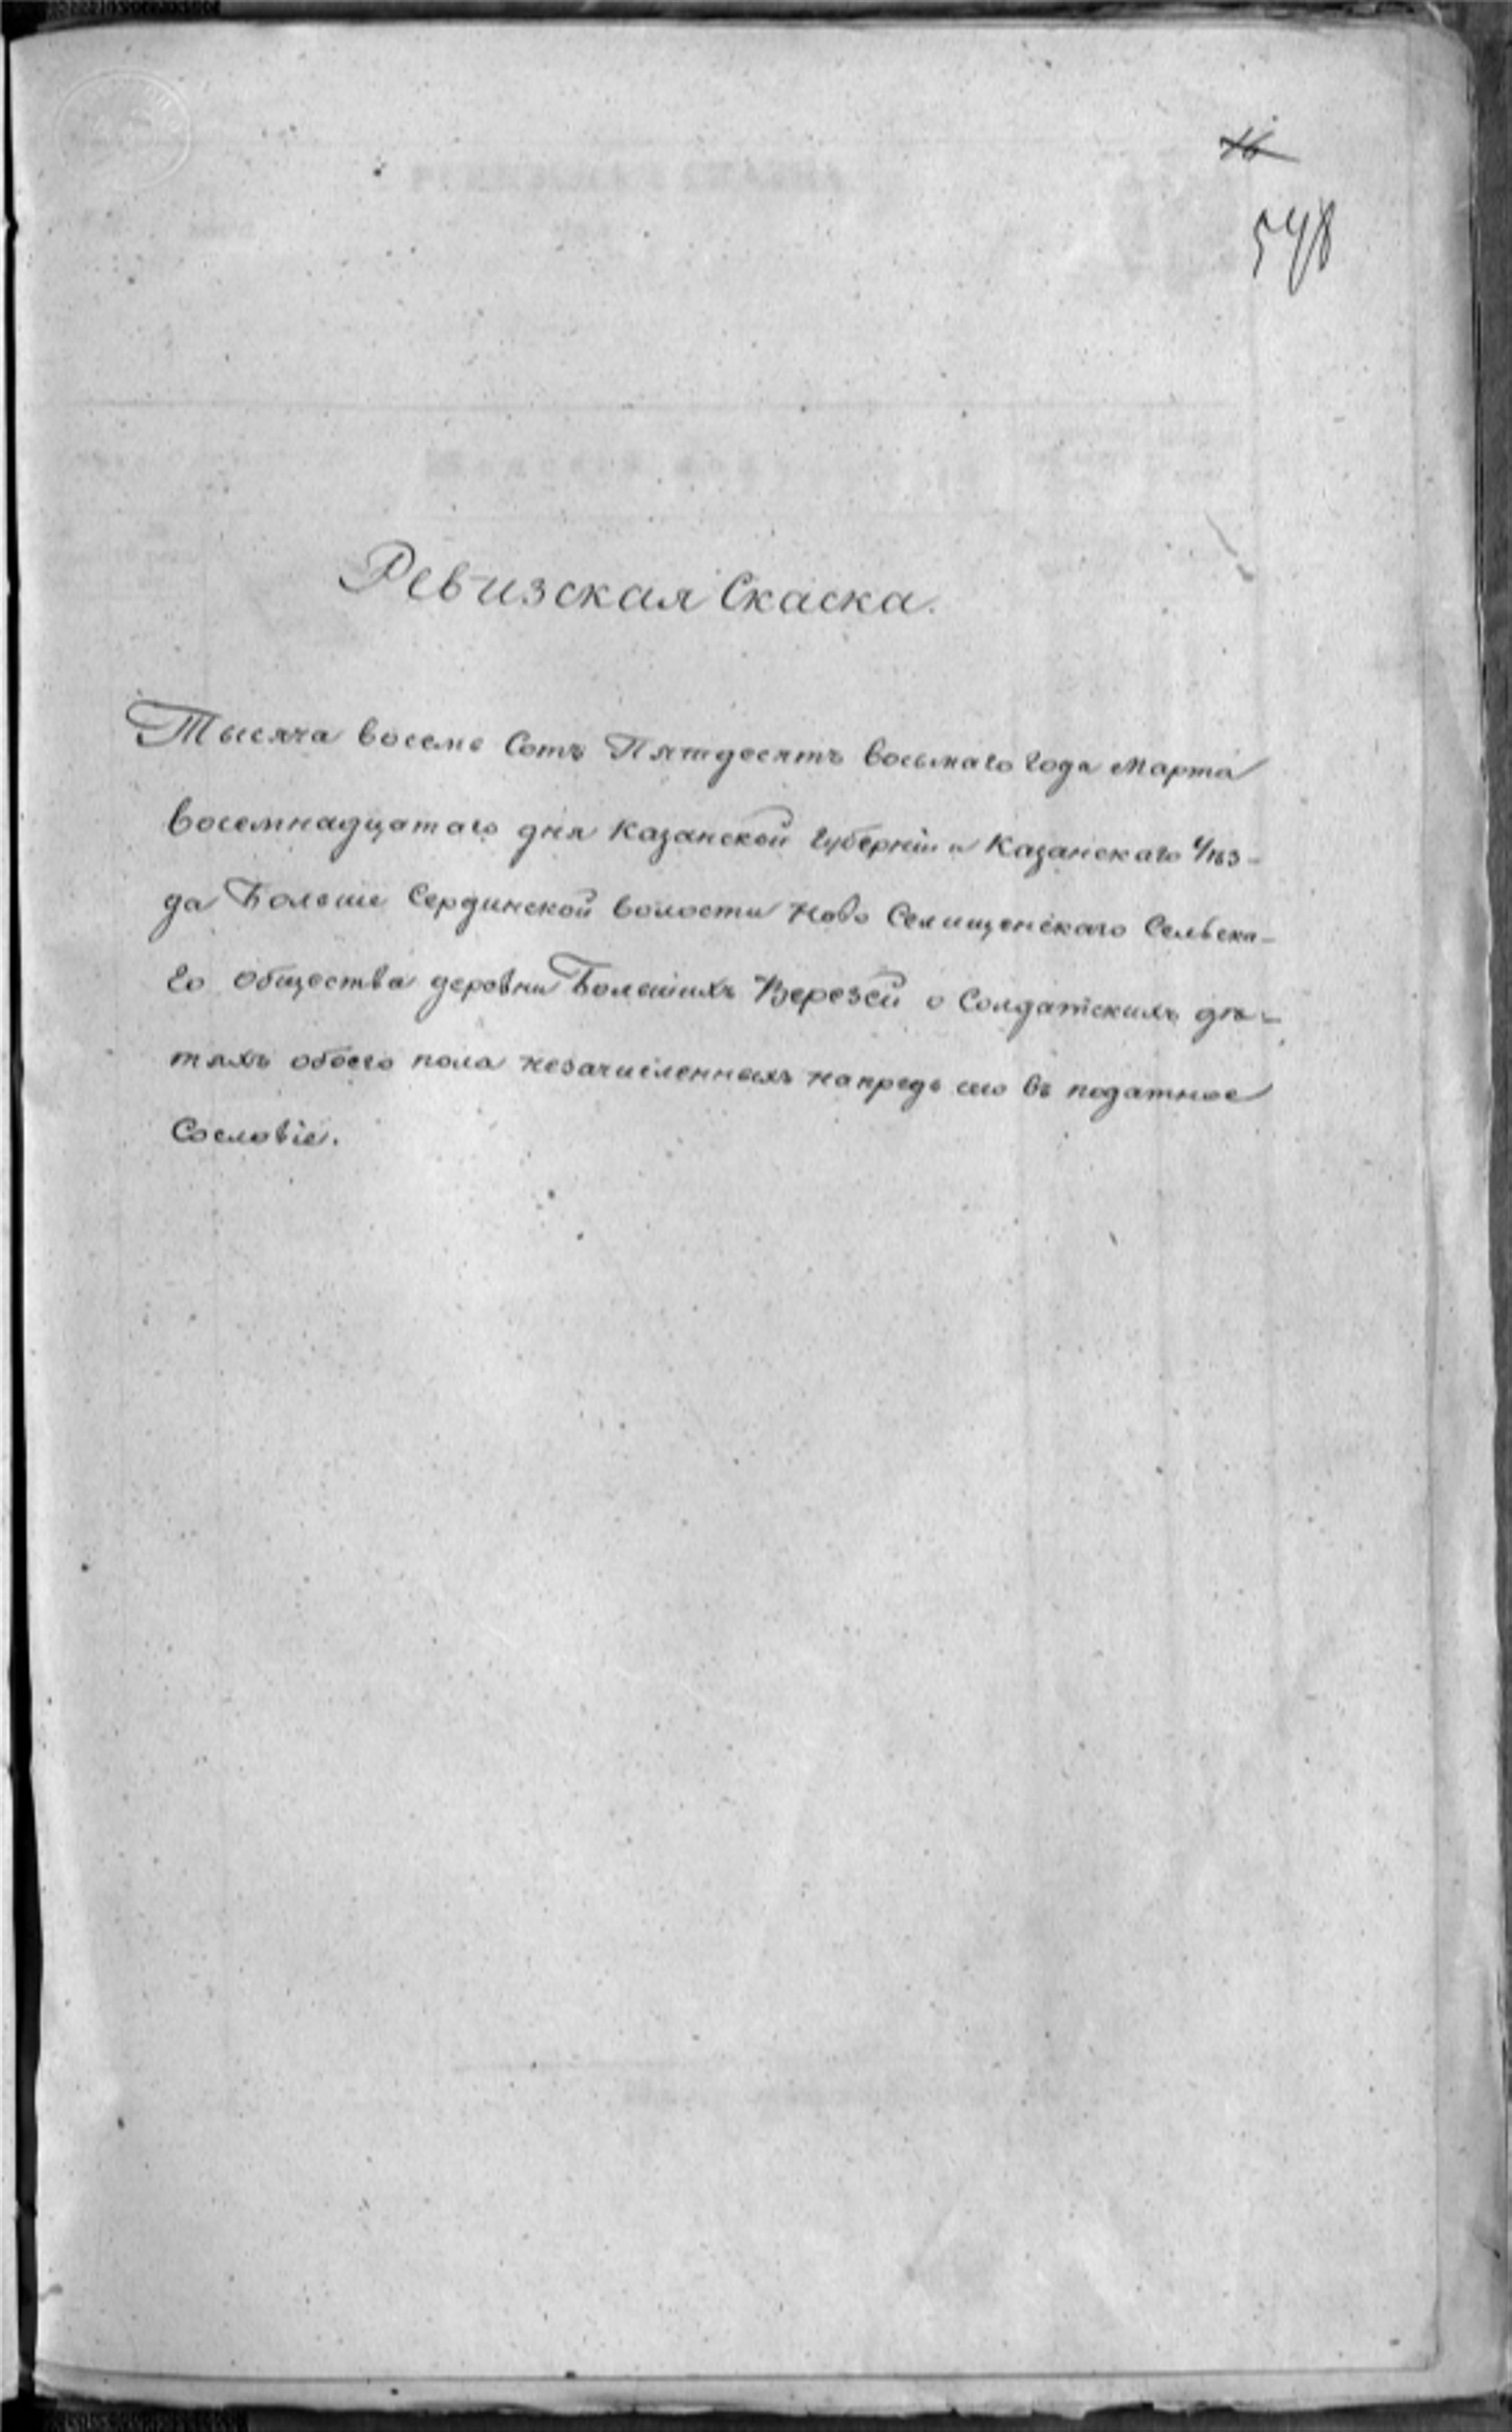 16
548
Ревизская Скаска.
Тысяча восемь Сотъ Пятдесятъ восьмаго года Марта
восемнадцатаго дня Казанской Губерніи Казанскаго Уѣз-
да Больше Сердинской волости Ново Селищенскаго Сельска-
го общества деровни Большихъ Верезей о Солдатскихъ дѣ-
тяхъ обоего пола незачисленныхъ напредь сего въ податное
Сословіе.